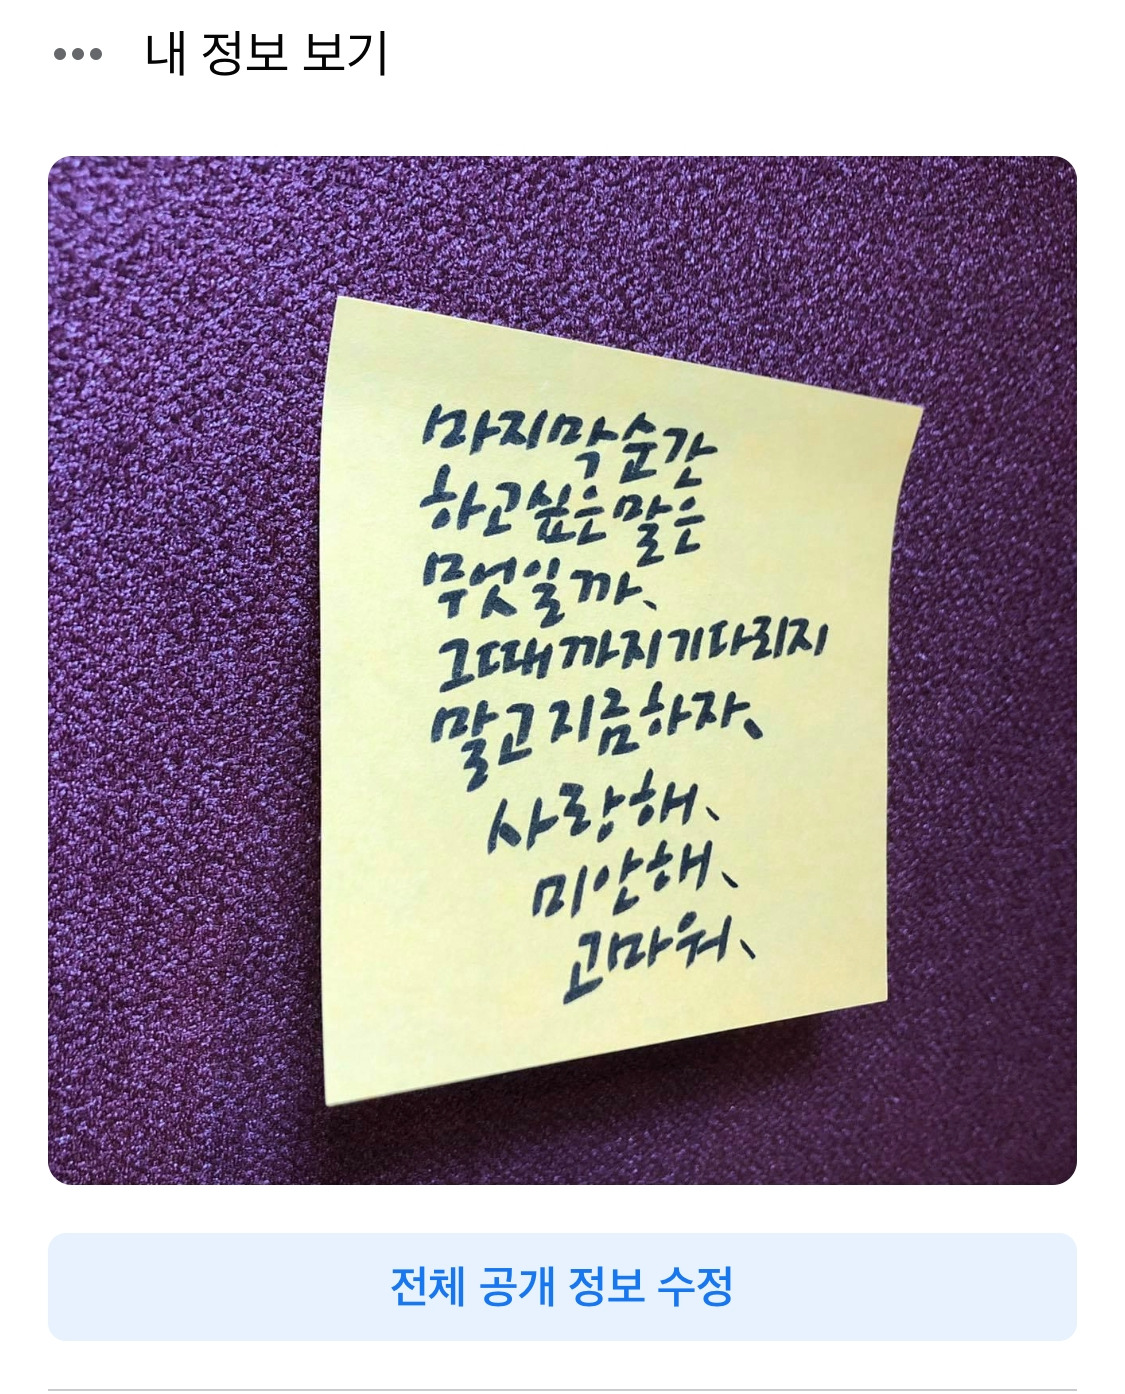 내 정보 보기
마지막순간
하고싶은말은
무엇일까、
그때까지기다리지
말고지금하자、
사랑해、
미안해、
고마워、
전체 공개 정보 수정